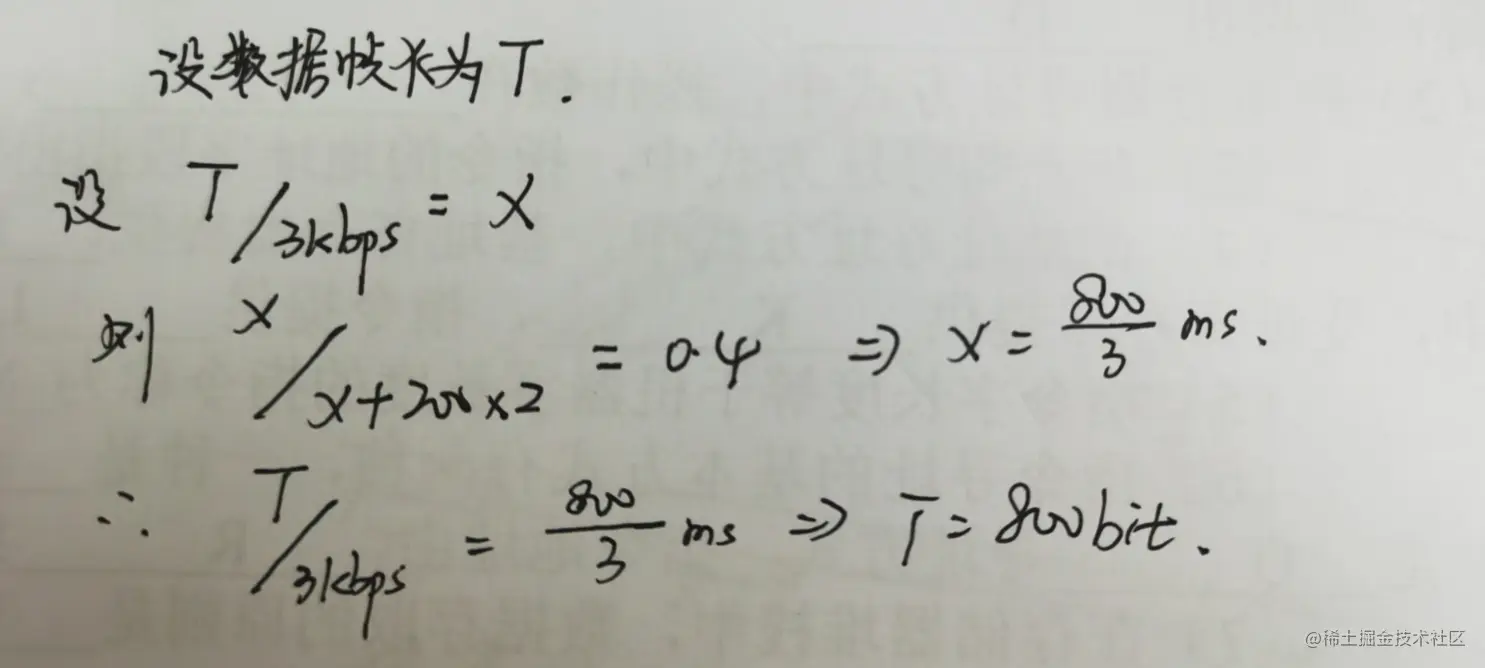 设数据帧长为T.
设 T/3kbps = X
则 X/X+200×2 = 0.4 ⇒ X = 800/3 ms.
∴ T/3kbps = 800/3 ms ⇒ T = 800bit.
@稀土掘金技术社区